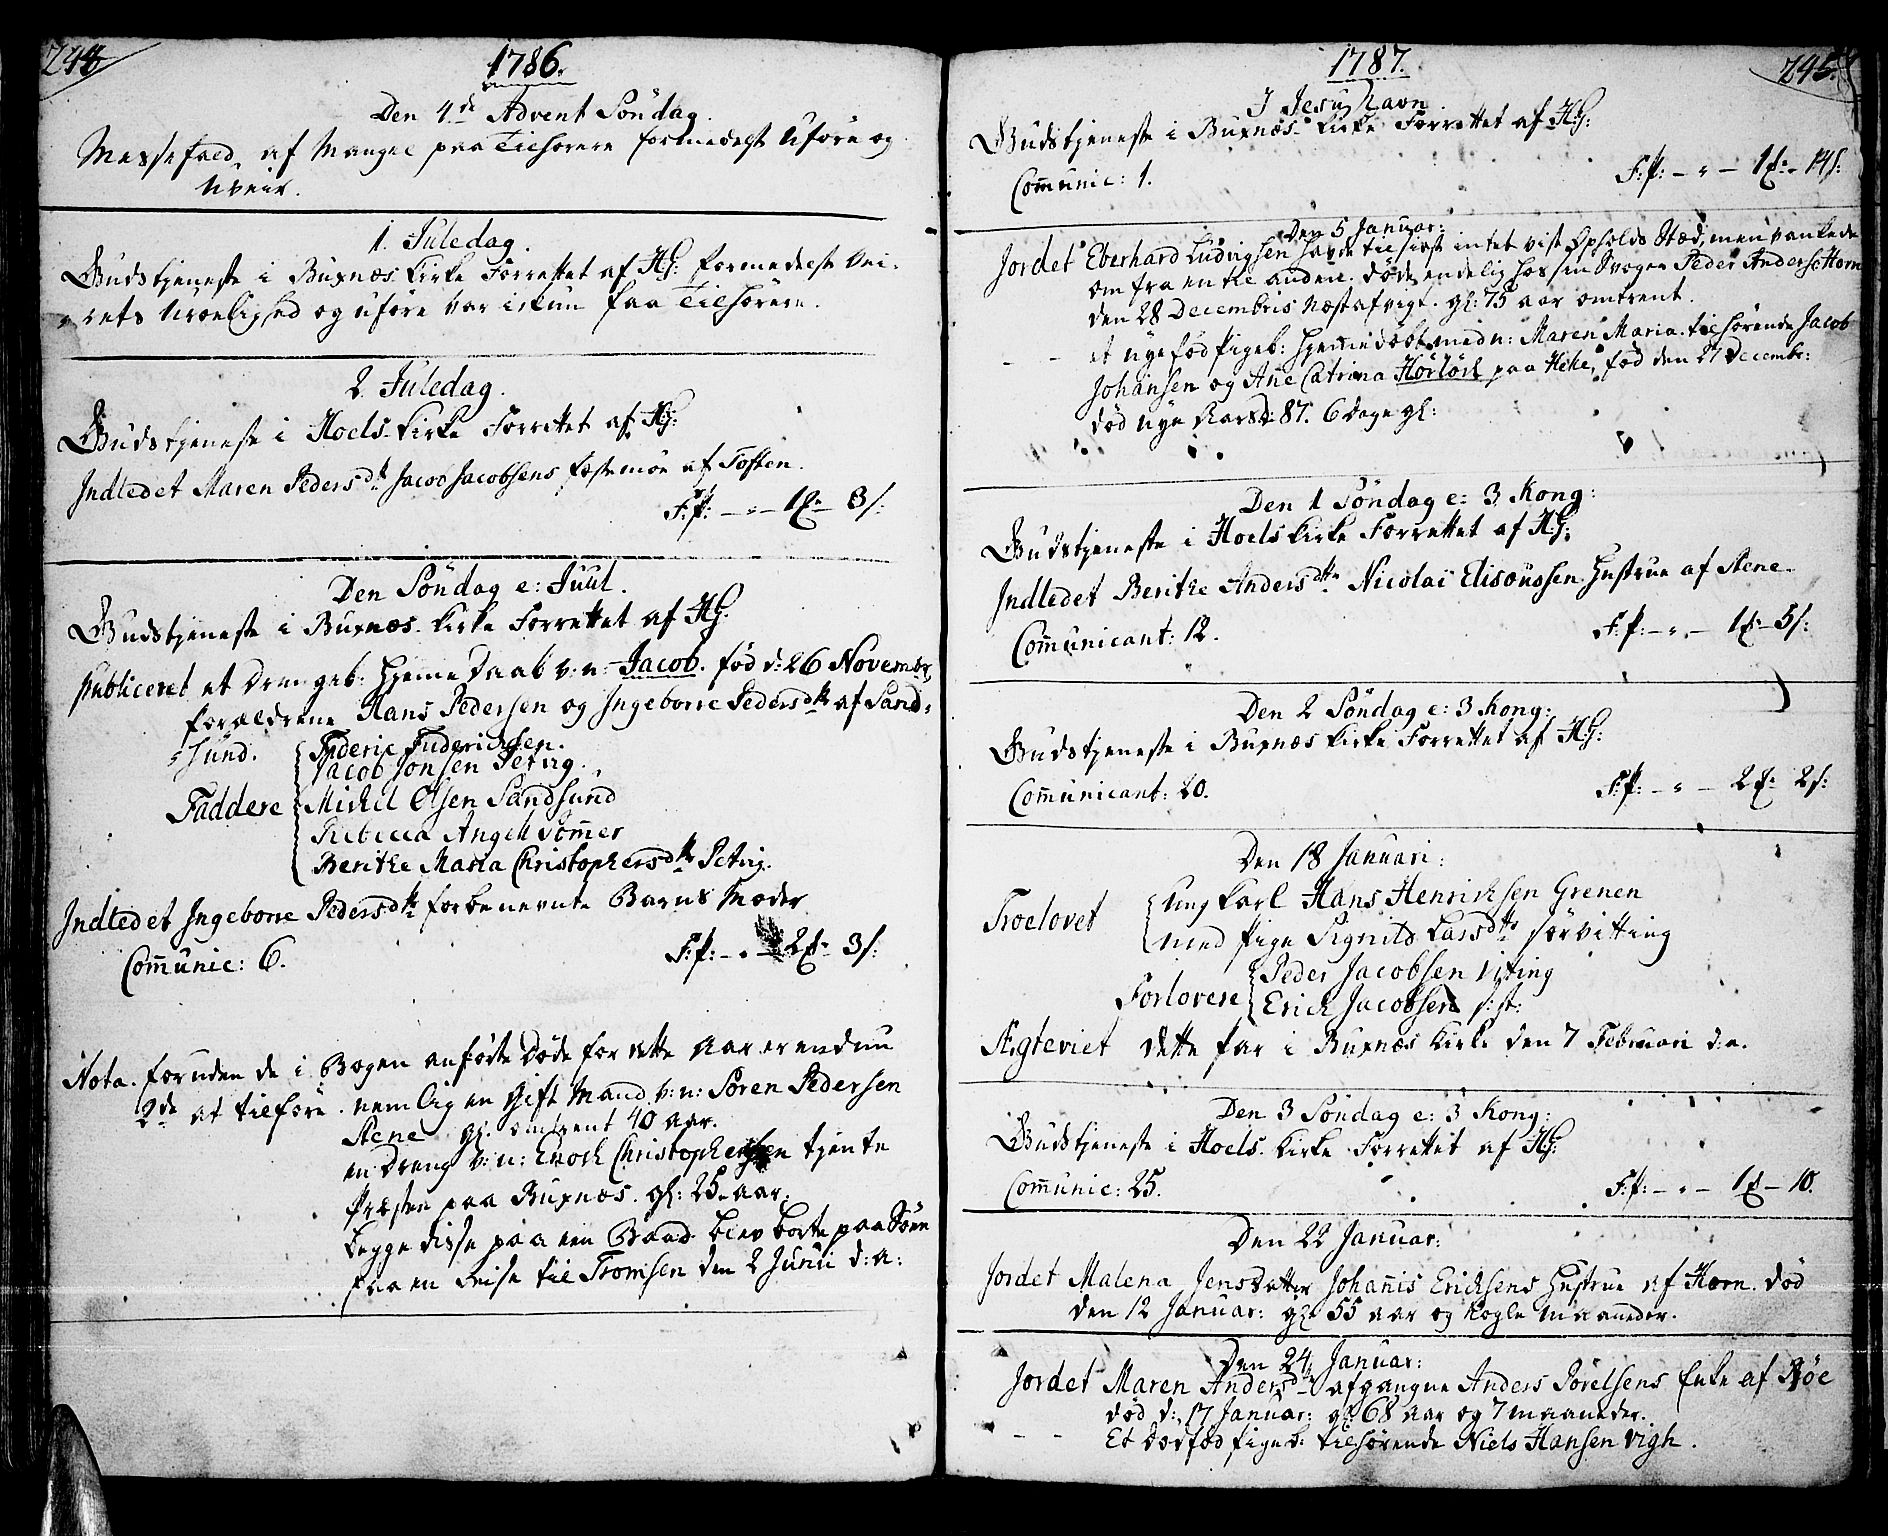 244
1786.
Den 4de Advent Söndag.
Messefald, af Mangel paa Tilhörere formedelst Uföre og
Uveir.
1. Juledag.
Gudstjeneste i Buxnæs Kirke Forrettet af HG: formedelst Vei-
rets Uroelighed og uföre var ikkun faa Tilhörere.
2. Juledag.
Gudstjeneste i Hoels Kirke Forrettet af HG:
Indledet Maren Pedersdtr Jacob Jacobsens Festemöe af Toften.
F:P: – " – 1 – 3 s:
Den Söndag e: Juul.
Gudstjeneste i Buxnæs Kirke Forrettet af HG:
Publiceret et Drengeb: Hjemme Daab v: n: Jacob. föd d: 26 Novembr
forældrene Hans Pedersen og Ingeborre Pedersdtr af Sand-
sund.
Frideric Fridericksen.
Jacob Jonsen Petvig.
Faddere Michel Olsen Sandsund
Rebecca Angell Sommer
Berithe Maria Christophersdtr Petvig.
Indledet Ingeborre Pedersdtr forbenevnte Barns Moder
Communic: 6.
F:P: – " – 2 – 3 s:
Nota. foruden de i Bogen anförte Döde for dette Aar er endnu
2de at tilföre. nemlig en Gift Mand v: n: Sören Pedersen
Stene gl. omtrent 40 aar.
en Dreng v: n: Enoch Christophersen tjente
Præsten paa Buxnæs. gl: 25 aar.
begge disse paa een Baad blev borte paa Söen
paa en Reise til Tromsen den 2 Junii d: a:
245.
1787.
I Jesu Navn.
Gudstjeneste i Buxnæs Kirke Forrettet af HG:
Communic: 1.
F:P: – " – 1 – 14 s:
Den 5 Januar:
Jordet Eberhard Ludvigsen havde til sidst intet vist Opholds Stæd, men vankede
om fra en til anden. döde endelig hos sin Svoger Peder Anderse Horn
den 28 Decembris næst afvigt. gl: 75 aar omtrent.
– – et nye föd Pigeb: Hjemmedöbt med n: Maren Maria. tilhörende Jacob
Johansen og Ane Catrina Hörlöck paa Hehe, föd den 27 Decembr:
död nye Aarsd: 87. 6 dage gl:
Den 1 Söndag e: 3 Kong:
Gudstjeneste i Hoels Kirke Forrettet af HG:
Indledet Berithe Andersdttr Nicolai Elisæussen Hustrue af Stene.
Communicant: 12.
F:P: – " – 1 – 5 s:
Den 2 Söndag e: 3 Kong:
Gudstjeneste i Buxnæs Kirke Forrettet af HG:
Communicant: 20.
F:P: – " – 2 – 2 s:
Den 18 Januari:
Troelovet Ung Karl Hans Henrichsen Grenen
med Pige Sigrild Larsdttr Hörvitting
Forlovere Peder Jacobsen Viting
Erich Jacobsen s: st:
Ægteviet dette Par i Buxnæs Kirke den 7 Februari d: a.
Den 3 Söndag e: 3 Kong:
Gudstjeneste i Hoels Kirke Forrettet af HG:
Communic: 25.
F:P: – " – 1 – 10.
Den 22 Januar:
Jordet Malena Jensdatter Johannis Ericksens Hustrue af Horn. död
den 12 Januar: gl: 55 aar og nogle maaneder.
Den 24 Januar:
Jordet Maren Andersdtr afgangne Anders Sörelsens Enke af Röe
död d: 17 Januar: gl: 68 aar og 7 maaneder.
– – Et Dödföd Pigeb: tilhörende Niels Hansen Vigh.